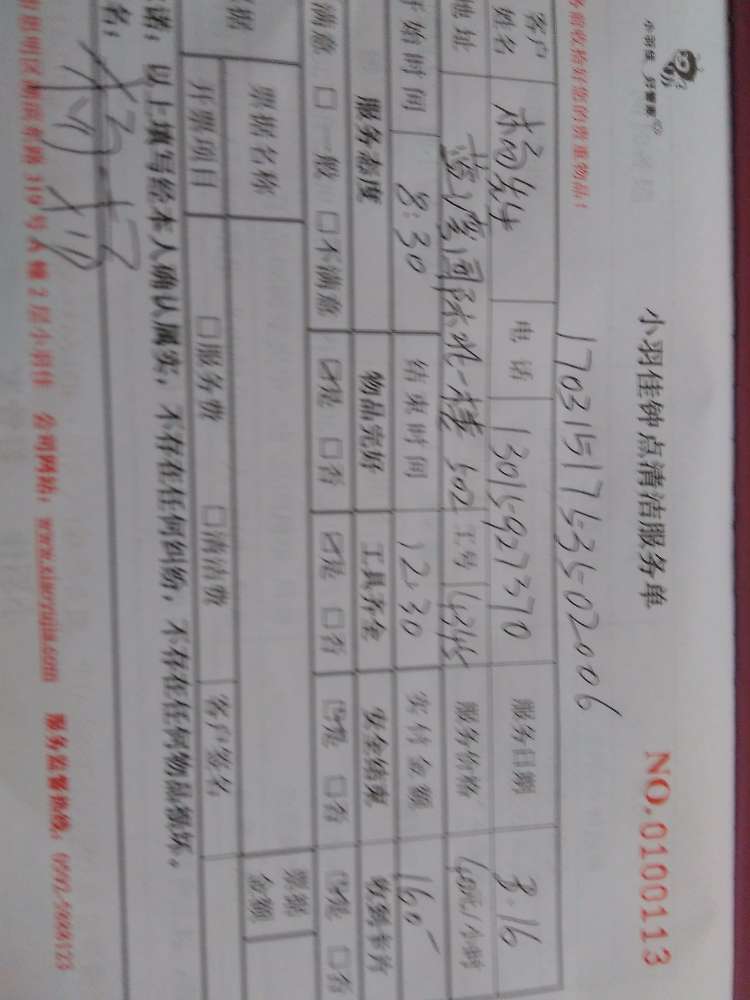 小羽佳 好管家
小羽佳钟点清洁服务单
NO.0100113
1703151753502006
务前收拾好您的贵重物品!
客户姓名 杨 电话 13015927370 服务日期 3.16
地址 蓝湾国际 一楼 502 工号 14345 服务价格 40元/小时
开始时间 8:30 结束时间 12:30 实付金额 160
服务态度 物品完好 工具齐全 安全结束 收到卡片
满意 □一般 □不满意 ☑是 □否 ☑是 □否 ☑是 □否 ☑是 □否
票据名称 票据金额
开票项目 □服务费 □清洁费 客户签名
诺:以上填写经本人确认属实,不存在任何纠纷,不存在任何物品损坏。
名:
319号A幢2层小羽佳 公司网站:www.xiaoyujia.com 服务监督热线:0592-5909123